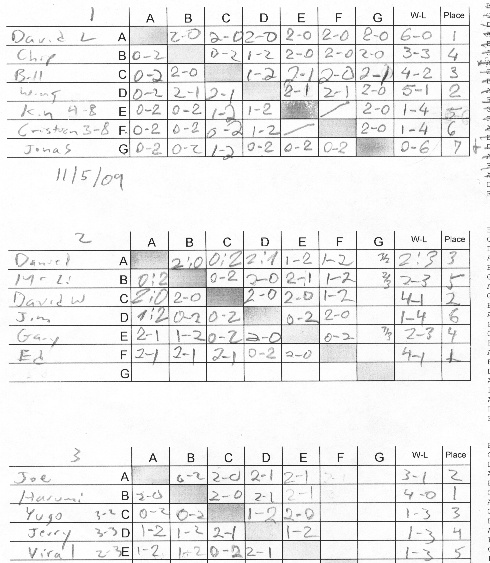 1 A B C D E F G W-L Place
David L A 2-0 2-0 2-0 2-0 2-0 2-0 6-0 1
Chip B 0-2 0-2 1-2 2-0 2-0 2-0 3-3 4
Bill C 0-2 2-0 1-2 2-1 2-0 2-1 4-2 3
D 0-2 2-1 2-1 2-1 2-1 2-0 5-1 2
Kin 4-8 E 0-2 0-2 1-2 1-2 2-0 1-4 5
Cristian 3-8 F 0-2 0-2 0-2 1-2 2-0 1-4 6
Jonas G 0-2 0-2 1-2 0-2 0-2 0-2 0-6 7
11/5/09
2 A B C D E F G W-L Place
Daniel A 2:0 0:2 2:1 1-2 1-2 2:3 3
Mr Li B 0:2 0-2 2-0 2-1 1-2 2-3 5
David W C 2:0 2-0 2-0 2-0 1-2 4-1 2
Jim D 1:2 0-2 0-2 0-2 2-0 1-4 6
Gary E 2-1 1-2 0-2 2-0 0-2 2-3 4
Ed F 2-1 2-1 2-1 0-2 2-0 4-1 1
G
3 A B C D E F G W-L Place
Joe A 0-2 2-0 2-1 2-1 3-1 2
Harumi B 2-0 2-0 2-1 2-1 4-0 1
Yugo 3-2 C 0-2 0-2 1-2 2-0 1-3 3
Jerry 3-3 D 1-2 1-2 2-1 1-2 1-3 4
Viral 2-3 E 1-2 1-2 0-2 2-1 1-3 5